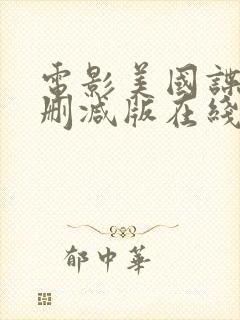 電影美國諜
刪減版在綫
郁中華